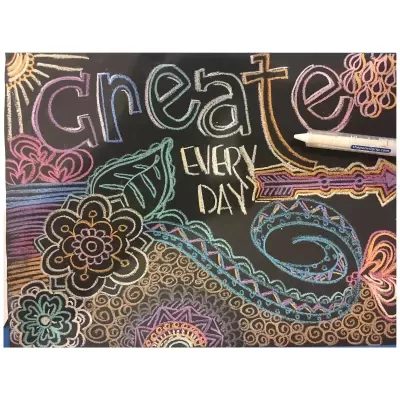 Create
EVERY
DAY